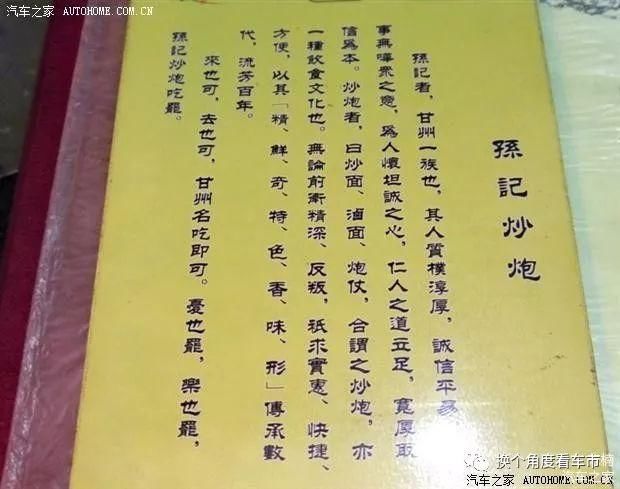 汽车之家 AUTOHOME.COM.CN
汽车之家 AUTOHOME.COM.CN
孫記炒炮
孫記者，甘州一族也，其人質樸淳厚，誠信平易，
事無嘩衆之意，爲人懷坦誠之心，仁人之道立足，寬厚取
信爲本。炒炮者，曰炒面、滷面、炮仗，合謂之炒炮，亦
一種飲食文化也。無論前衛精深、反叛，祇求實惠、快捷、
方便，以其「精、鮮、奇、特、色、香、味、形」傳承數
代，流芳百年。
來也可，去也可，甘州名吃即可。憂也罷，樂也罷，
孫記炒炮吃罷。
换个角度看车市楠
汽车之家
汽车之家 AUTOHOME.COM.CN